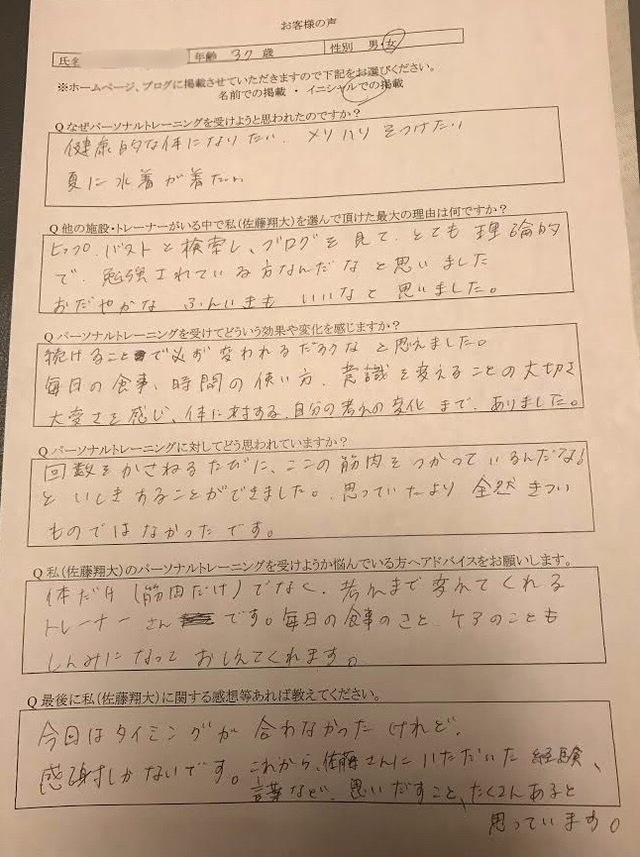 お客様の声
氏名 年齢 37 歳 性別 男・女
※ホームページ、ブログに掲載させていただきますので下記をお選びください。
名前での掲載 ・ イニシャルでの掲載
Q なぜパーソナルトレーニングを受けようと思われたのですか？
健康的な体になりたい、メリハリをつけたい
夏に水着が着たい
Q 他の施設・トレーナーがいる中で私(佐藤翔大)を選んで頂けた最大の理由は何ですか？
ヒップ、バストと検索し、ブログを見て、とても理論的
で、勉強されている方なんだなと思いました
おだやかな ふんいきも いいなと思いました。
Q パーソナルトレーニングを受けてどういう効果や変化を感じますか？
続けることで必ず変われるだろうなと思えました。
毎日の食事、時間の使い方、意識を変えることの大切さ
大変さを感じ、体に対する、自分の考えの変化まで、ありました。
Q パーソナルトレーニングに対してどう思われていますか？
回数をかさねるたびに、ここの筋肉をつかっているんだな
といしきすることができました。思っていたより 全然きつい
ものではなかったです。
Q 私(佐藤翔大)のパーソナルトレーニングを受けようか悩んでいる方へアドバイスをお願いします。
体だけ(筋肉だけ)でなく、考えまで変えてくれる
トレーナーさん です。毎日の食事のこと、ケアのことも
しんみになって おしえてくれます。
Q 最後に私(佐藤翔大)に関する感想等あれば教えてください。
今回はタイミングが合わなかったけれど、
感謝しかないです。これから、佐藤さんにいただいた経験、
言葉など、思いだすこと、たくさんあると
思っています。